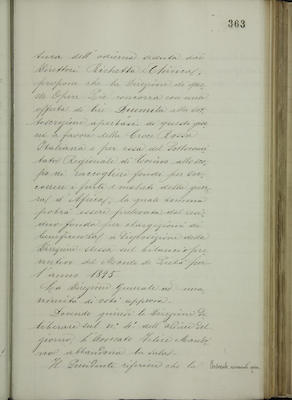 363
tura dell'odierna seduta dai
Direttori Richetta
propone che la Direzione di que-
ste Opere Pie concorra con una
offerta di lire Duemila alla sot-
toscrizione apertasi di questi gior-
ni a favore della Croce Rossa
Italiana e per essa del Sottocomi-
tato Regionale di Torino allo sco-
po di raccogliere fondi per soc-
correre i feriti e malati della guer-
ra d'Africa, la qual somma
potrà essere prelevata dal
fondo per elargizioni di
beneficenza a disposizione della
Direzione stessa sul bilancio pre-
ventivo del Monte di Pietà per
l'anno 1895
La Direzione Generale ad una-
nimità di voti approva.
Dovendo quindi la Direzione de-
liberare sul n.° 4° dell'ordine del
giorno, l'Avvocato
abbandona la sala.
Il Presidente riferisce che la